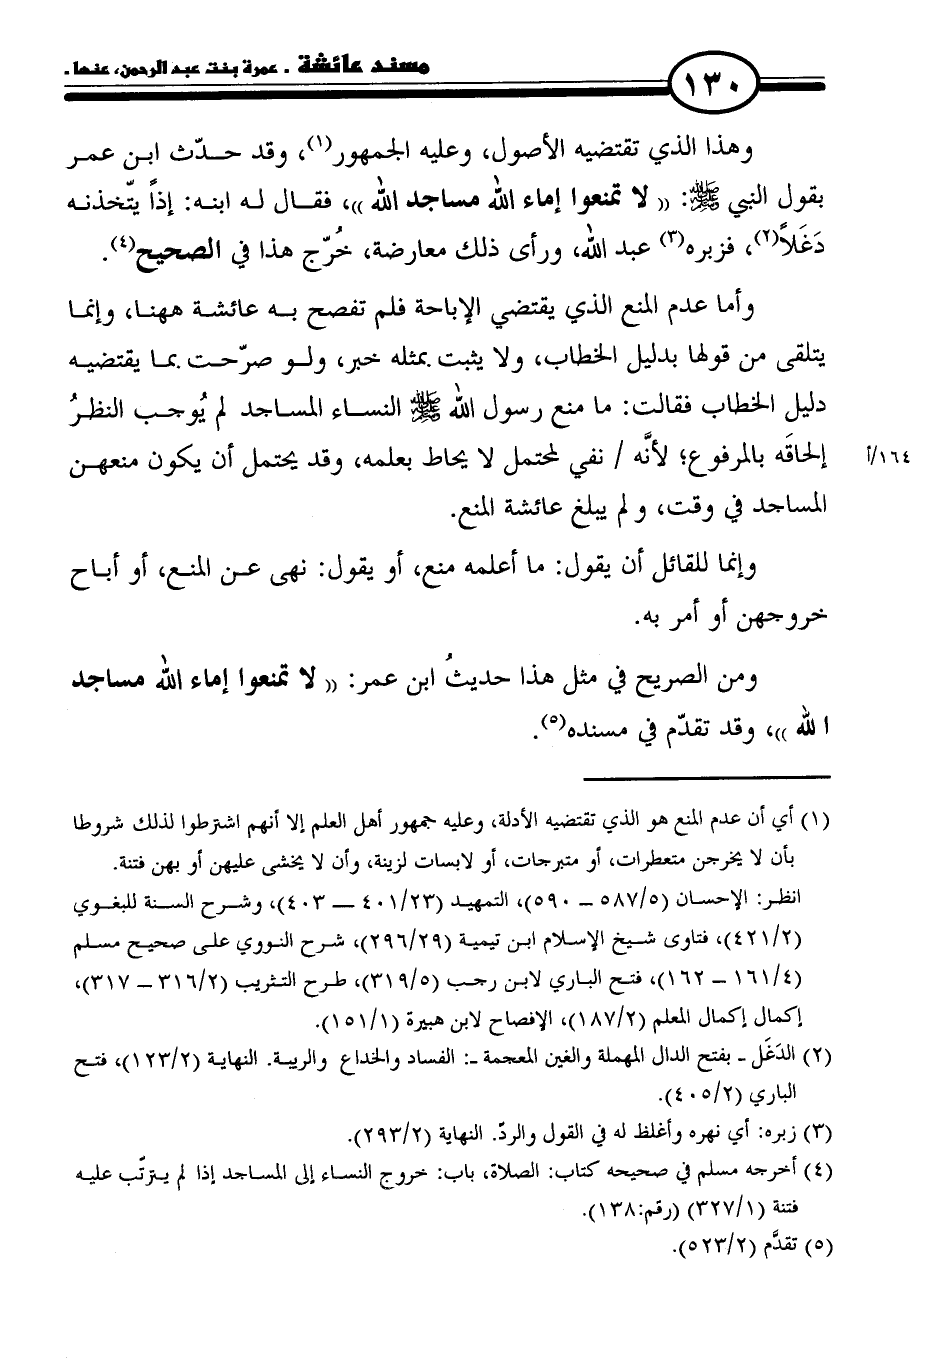 مسند عائشة . عمرة بنت عبد الرحمن، عنها .
١٣٠
وهذا الذي تقتضيه الأصول، وعليه الجمهور(١)، وقد حدّث ابن عمر
بقول النبي ﷺ: « لا تمنعوا إماء الله مساجد الله »، فقال له ابنه: إذاً يتّخذنه
دَغَلاً(٢)، فزبره(٣) عبد الله، ورأى ذلك معارضة، خُرّج هذا في الصحيح(٤).
وأما عدم المنع الذي يقتضي الإباحة فلم تفصح به عائشة ههنا، وإنما
يتلقى من قولها بدليل الخطاب، ولا يثبت بمثله خبر، ولو صرّحت بما يقتضيه
دليل الخطاب فقالت: ما منع رسول الله ﷺ النساء المساجد لم يُوجب النظرُ
إلحاقَه بالمرفوع؛ لأنَّه / نفي لمحتمل لا يحاط بعلمه، وقد يحتمل أن يكون منعهن
١٦٤/أ
المساجد في وقت، ولم يبلغ عائشة المنع.
وإنما للقائل أن يقول: ما أعلمه منع، أو يقول: نهى عن المنع، أو أباح
خروجهن أو أمر به.
ومن الصريح في مثل هذا حديثُ ابن عمر: « لا تمنعوا إماء الله مساجد
الله »، وقد تقدّم في مسنده(٥).
(١) أي أن عدم المنع هو الذي تقتضيه الأدلة، وعليه جمهور أهل العلم إلا أنهم اشترطوا لذلك شروطا
بأن لا يخرجن متعطرات، أو متبرجات، أو لابسات لزينة، وأن لا يخشى عليهن أو بهن فتنة.
انظر: الإحسان (٥٨٧/٥ – ٥٩٠)، التمهيد (٤٠١/٢٣ — ٤٠٣)، وشرح السنة للبغوي
(٤٢١/٢)، فتاوى شيخ الإسلام ابن تيمية (٢٩٦/٢٩)، شرح النووي على صحيح مسلم
(١٦١/٤ – ١٦٢)، فتح الباري لابن رجب (٣١٩/٥)، طرح التثريب (٣١٦/٢ – ٣١٧)،
إكمال إكمال المعلم (١٨٧/٢)، الإفصاح لابن هبيرة (١٥١/١).
(٢) الدَغَل - بفتح الدال المهملة والغين المعجمة -: الفساد والخداع والريبة. النهاية (١٢٣/٢)، فتح
الباري (٤٠٥/٢).
(٣) زبره: أي نهره وأغلظ له في القول والردّ. النهاية (٢٩٣/٢).
(٤) أخرجه مسلم في صحيحه كتاب: الصلاة، باب: خروج النساء إلى المساجد إذا لم يترتّب عليه
فتنة (٣٢٧/١) (رقم:١٣٨).
(٥) تقدَّم (٥٢٣/٢).